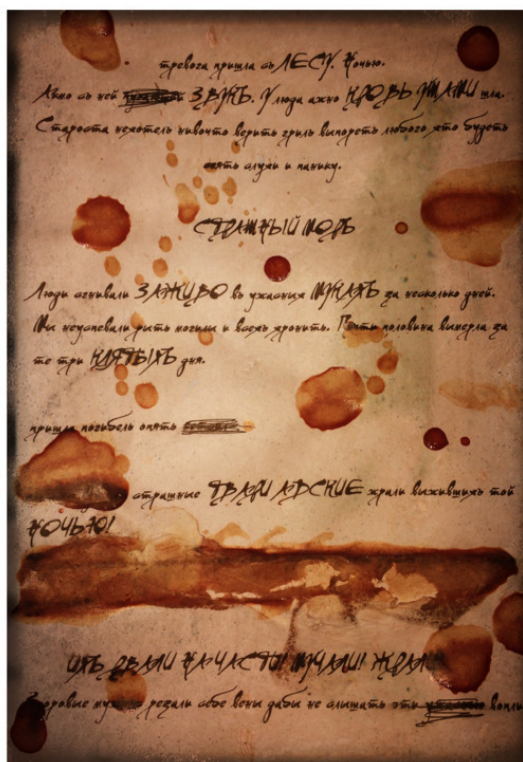 тревога пришла съ ЛЕСУ. Ночью.
Лихо съ ней ЗВУКЪ. У люда ажно КРОВЬ УШАМИ шла.
Староста нехотелъ нивочто верить грилъ выпореть любого хто будеть
сеять слухи и панику.
СТРАШНЫЙ МОРЪ
Люди сгнивали ЗАЖИВО въ ужасныя МУКАХЪ за несколько дней.
Мы неуспевали рыть могилы и всехъ хронить. Почти половина вымерла за
те три КЛЯТЫХЪ дня.
пришла погибель опять
страшные ТВАРИ АДСКИЕ жрали выжившихъ той
НОЧЬЮ!
ИХЪ РВАЛИ НА ЧАСТИ! МУЧАЛИ! ЖРАЛИ
Здоровые мужики резали собе вены дабы не слышать эти вопли